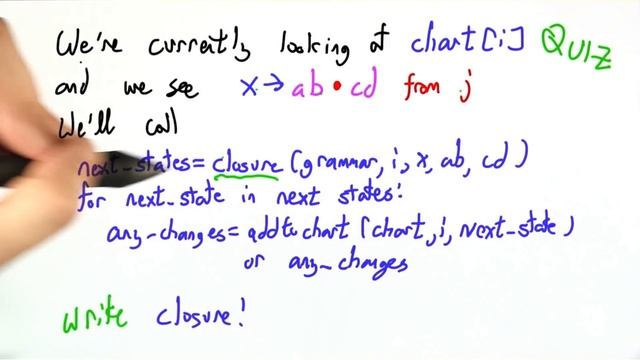 We're currently looking at chart[i] QUIZ
and we see x → ab • cd from j
We'll call
next_states = closure (grammar, i, x, ab, cd)
for next_state in next states:
any_changes = addtochart (chart, i, next_state)
or any_changes
write closure!